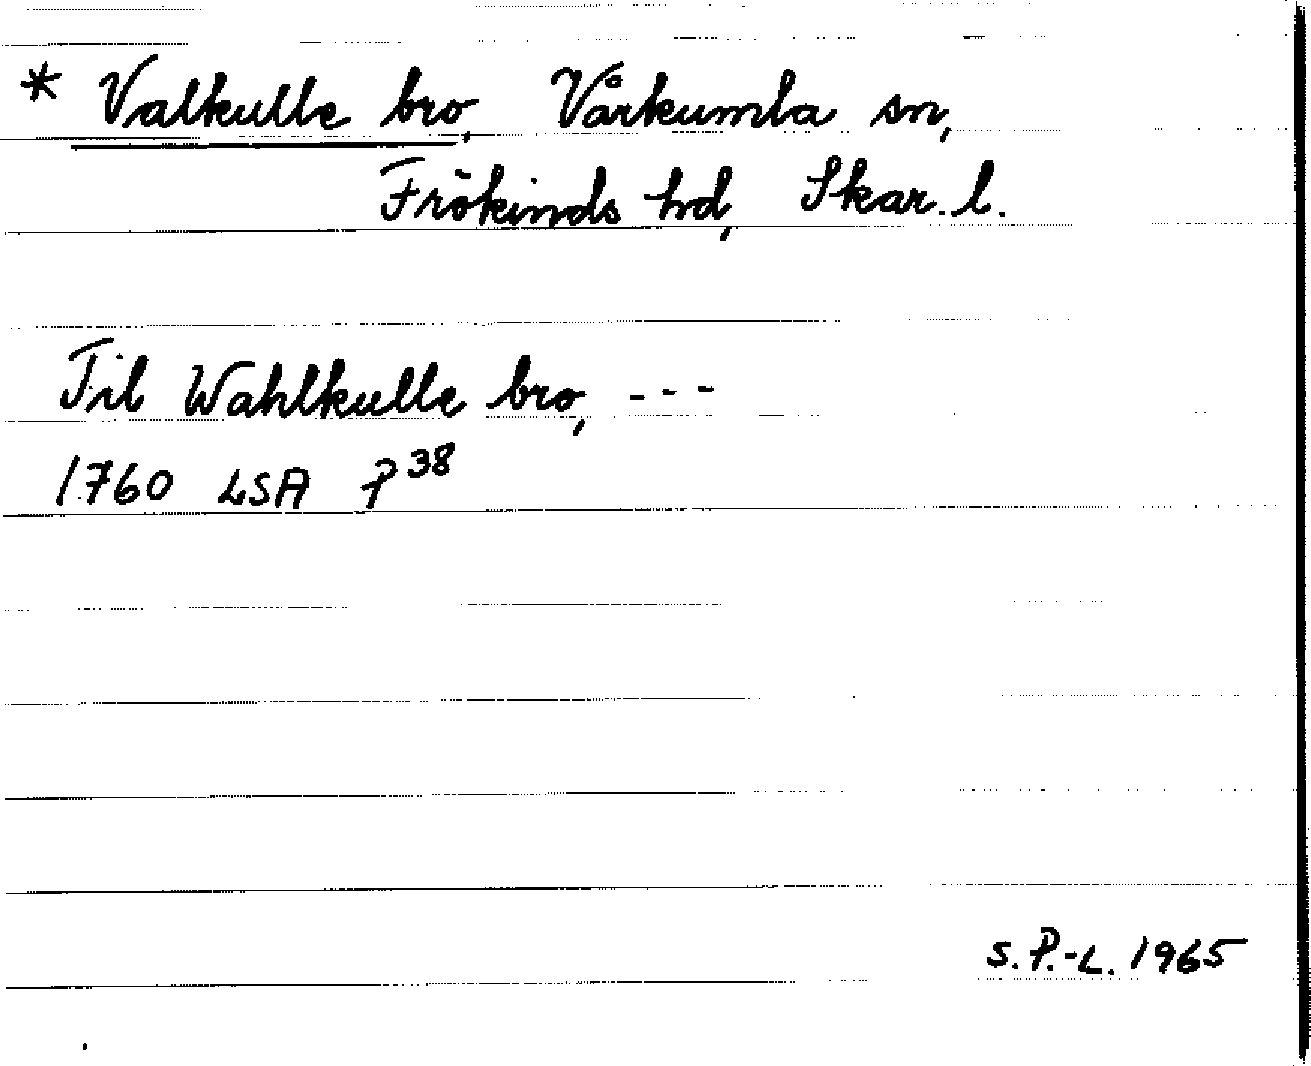 * Valkulle bro, Vårkumla sn,
Frökinds hd, Skar. l.
Til Wahlkulle bro, ---
1760 LSA P 38
S. P.-L. 1965